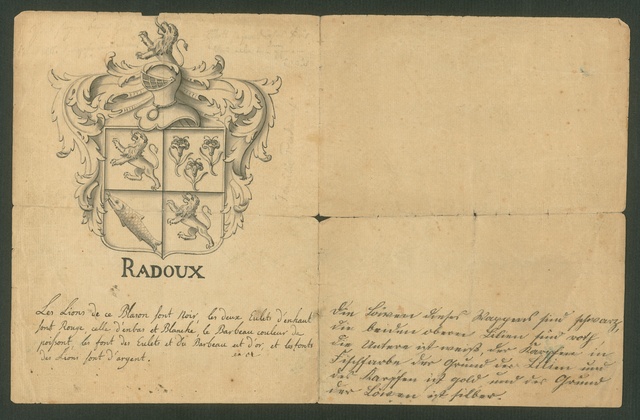 RADOUX
Les Lions de ce Blason sont Noir, les deux Eulets d'enhaut
sont Rouge, celle d'enbas et Blanche, le Barbeau couleur de
poissont, les font des Eulets et du Barbeau est d'or, et les fonts
des Lions sont d'argent.
Die Löwen dieses Wappens sind schwarz,
die beiden oberen Lilien sind roth,
die Untere ist weiß, der Karpfen in
Fischfarbe der Grund der Lilien und
des Karpfen ist gold und der Grund
der Löwen ist silber.